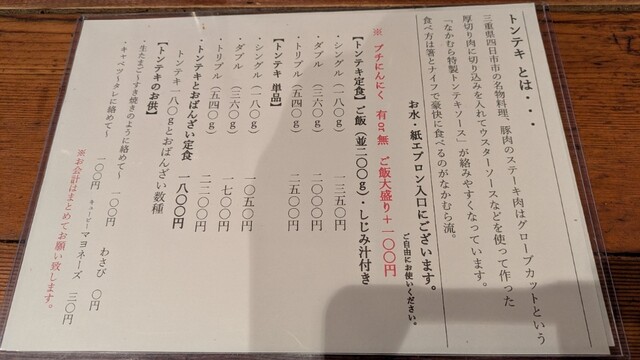 トンテキ とは・・・
三重県四日市市の名物料理、豚肉のステーキ肉はグローブカットという
厚切り肉に切り込みを入れてウスターソースなどを使って作った
「なかむら特製トンテキソース」が絡みやすくなっています。
食べ方は箸とナイフで豪快に食べるのがなかむら流。
お水・紙エプロン入口にございます。
ご自由にお使いください。
※ プチにんにく 有or無 ご飯大盛り＋一〇〇円
【トンテキ定食】ご飯（並二〇〇g）・しじみ汁付き
・シングル（一八〇g） 一三五〇円
・ダブル（三六〇g） 二〇〇〇円
・トリプル（五四〇g） 二五〇〇円
【トンテキ 単品】
・シングル（一八〇g） 一〇五〇円
・ダブル（三六〇g） 一七〇〇円
・トリプル（五四〇g） 二二〇〇円
・トンテキとおばんざい定食 一八〇〇円
トンテキ一八〇gとおばんざい数種
【トンテキのお供】
・生たまご〜すき焼きのように絡めて〜 一〇〇円 わさび 〇円
・キャベツ〜タレに絡めて〜 一〇〇円 キューピーマヨネーズ 三〇円
※お会計はまとめてお願い致します。